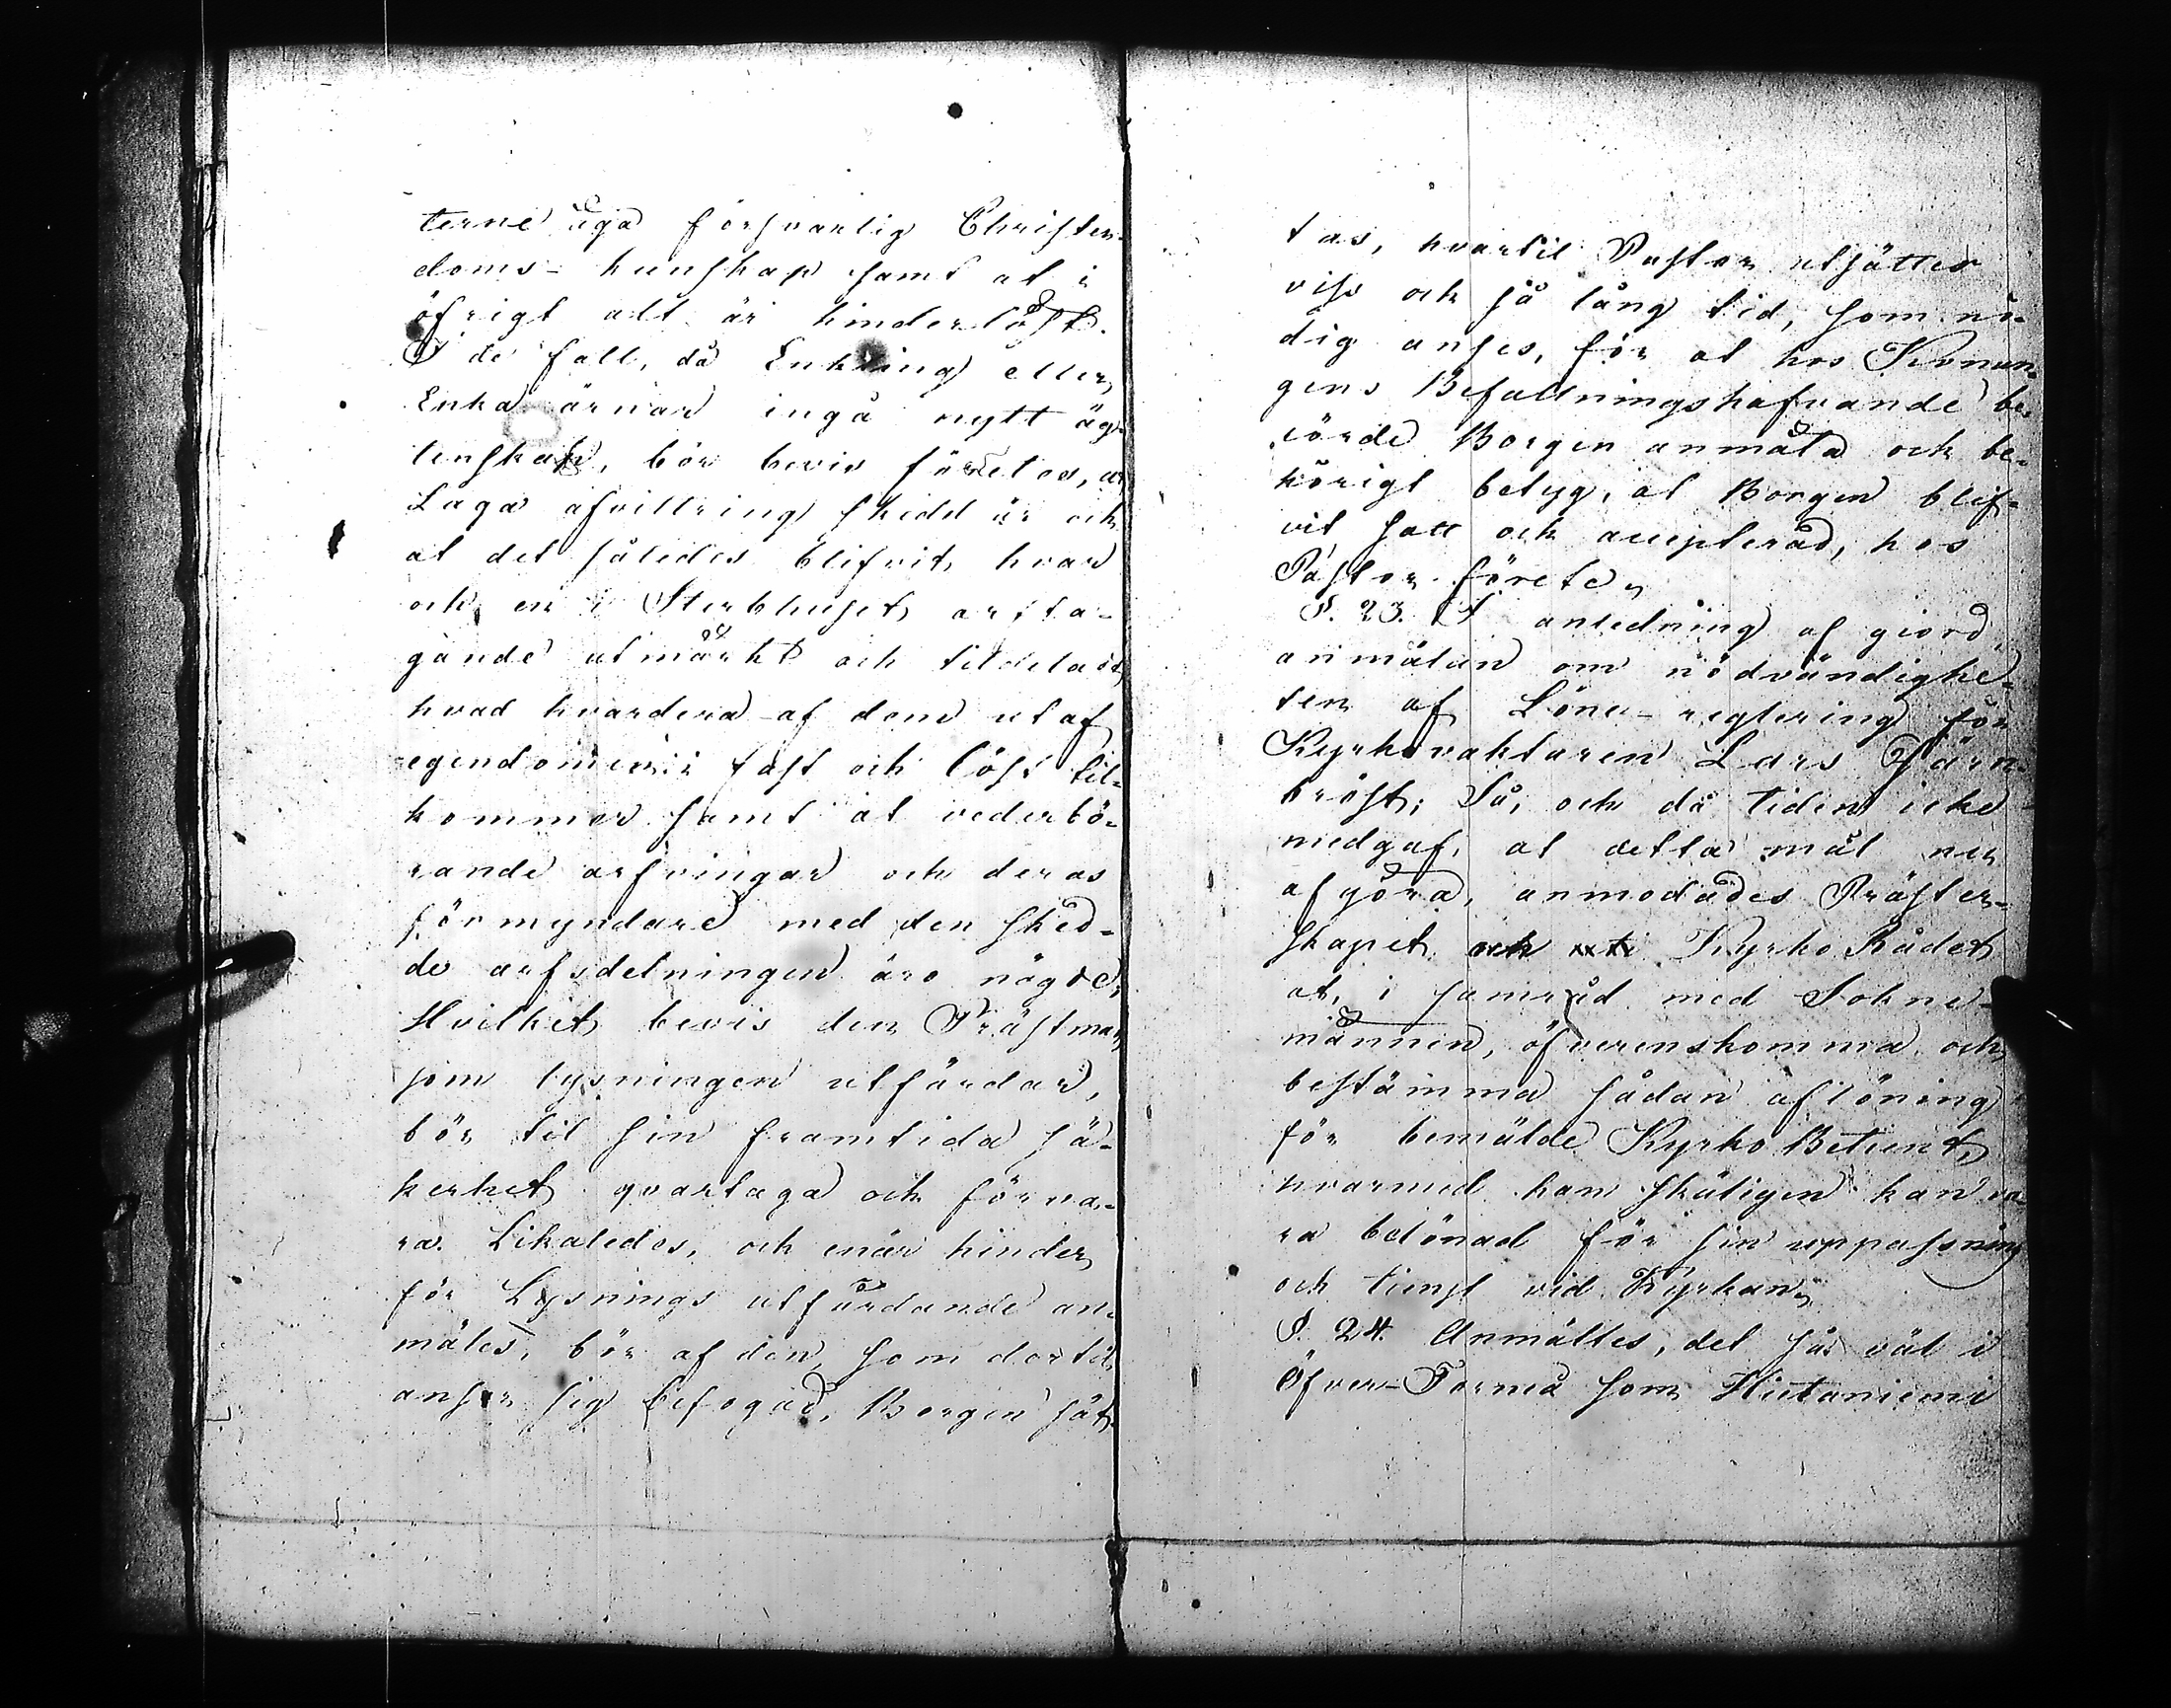 terne äga försvarlig Christen-
doms-kunskap samt at i
öfrigt alt är hinderlöst.
I de fall, då Enkling eller
Enka ärnar ingå nytt äg-
tenskap, bör bevis företes, at
Laga afvittring skedd är och
at det således blifvit, hvar
och en i Sterbhuset arfta-
gande utmärkt och tildelad,
hvad hvardera af dem utaf
egendomen i fast och löst til-
kommer samt at vederbö-
rande arfvingar och deras
förmyndare med den sked-
de arfsdelningen äro nögde,
Hvilket bevis den Prästman,
som lysningen utfärdar,
bör til sin framtida sä-
kerhet qvartaga och förva-
ra. Likaledes, och enär hinder
för Lysnings utfärdande an-
mäles, bör af den, som dertil
anser sig befogad, Borgen sät-
tas, hvartil Pastor utsätter
viss och så lång tid, som nö-
dig anses, för at hos Konun-
gens Befallningshafvande be-
rörde Borgen anmäla och be-
hörigt betyg, at Borgen blif-
vit satt och accepterad, hos
Pastor förete.
§. 23. I anledning af giord
anmälan om nödvändighe-
ten af Löne-reglering för
Kyrkovaktaren Lars Järn-
bröst; Så, och då tiden icke
medgaf, at detta mål nu
afgöra, anmodades Präster-
skapet och Kyrko Rådet
at, i samråd med Sokne-
männen, öfverenskomma och
bestämma sådan aflöning
för bemälde Kyrko Betient,
hvarmed han skäligen kan va-
ra belönad för sin uppassning
och tienst vid Kyrkan.
§. 24. Anmältes, det så väl i
Öfver-Torneå som Hietaniemi